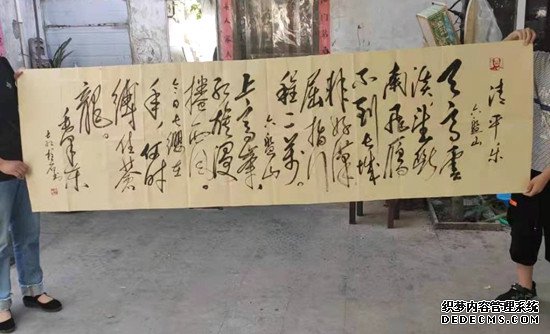 清平乐
六盘山
天高雲
淡望断
南飛雁
不到长城
非好漢
屈指行
程二万。
六盘山
上高峯
红旗漫
捲西风。
今日长缨在
手,何时
缚住苍
龙。
织梦内容管理系统
DEDECMS.COM